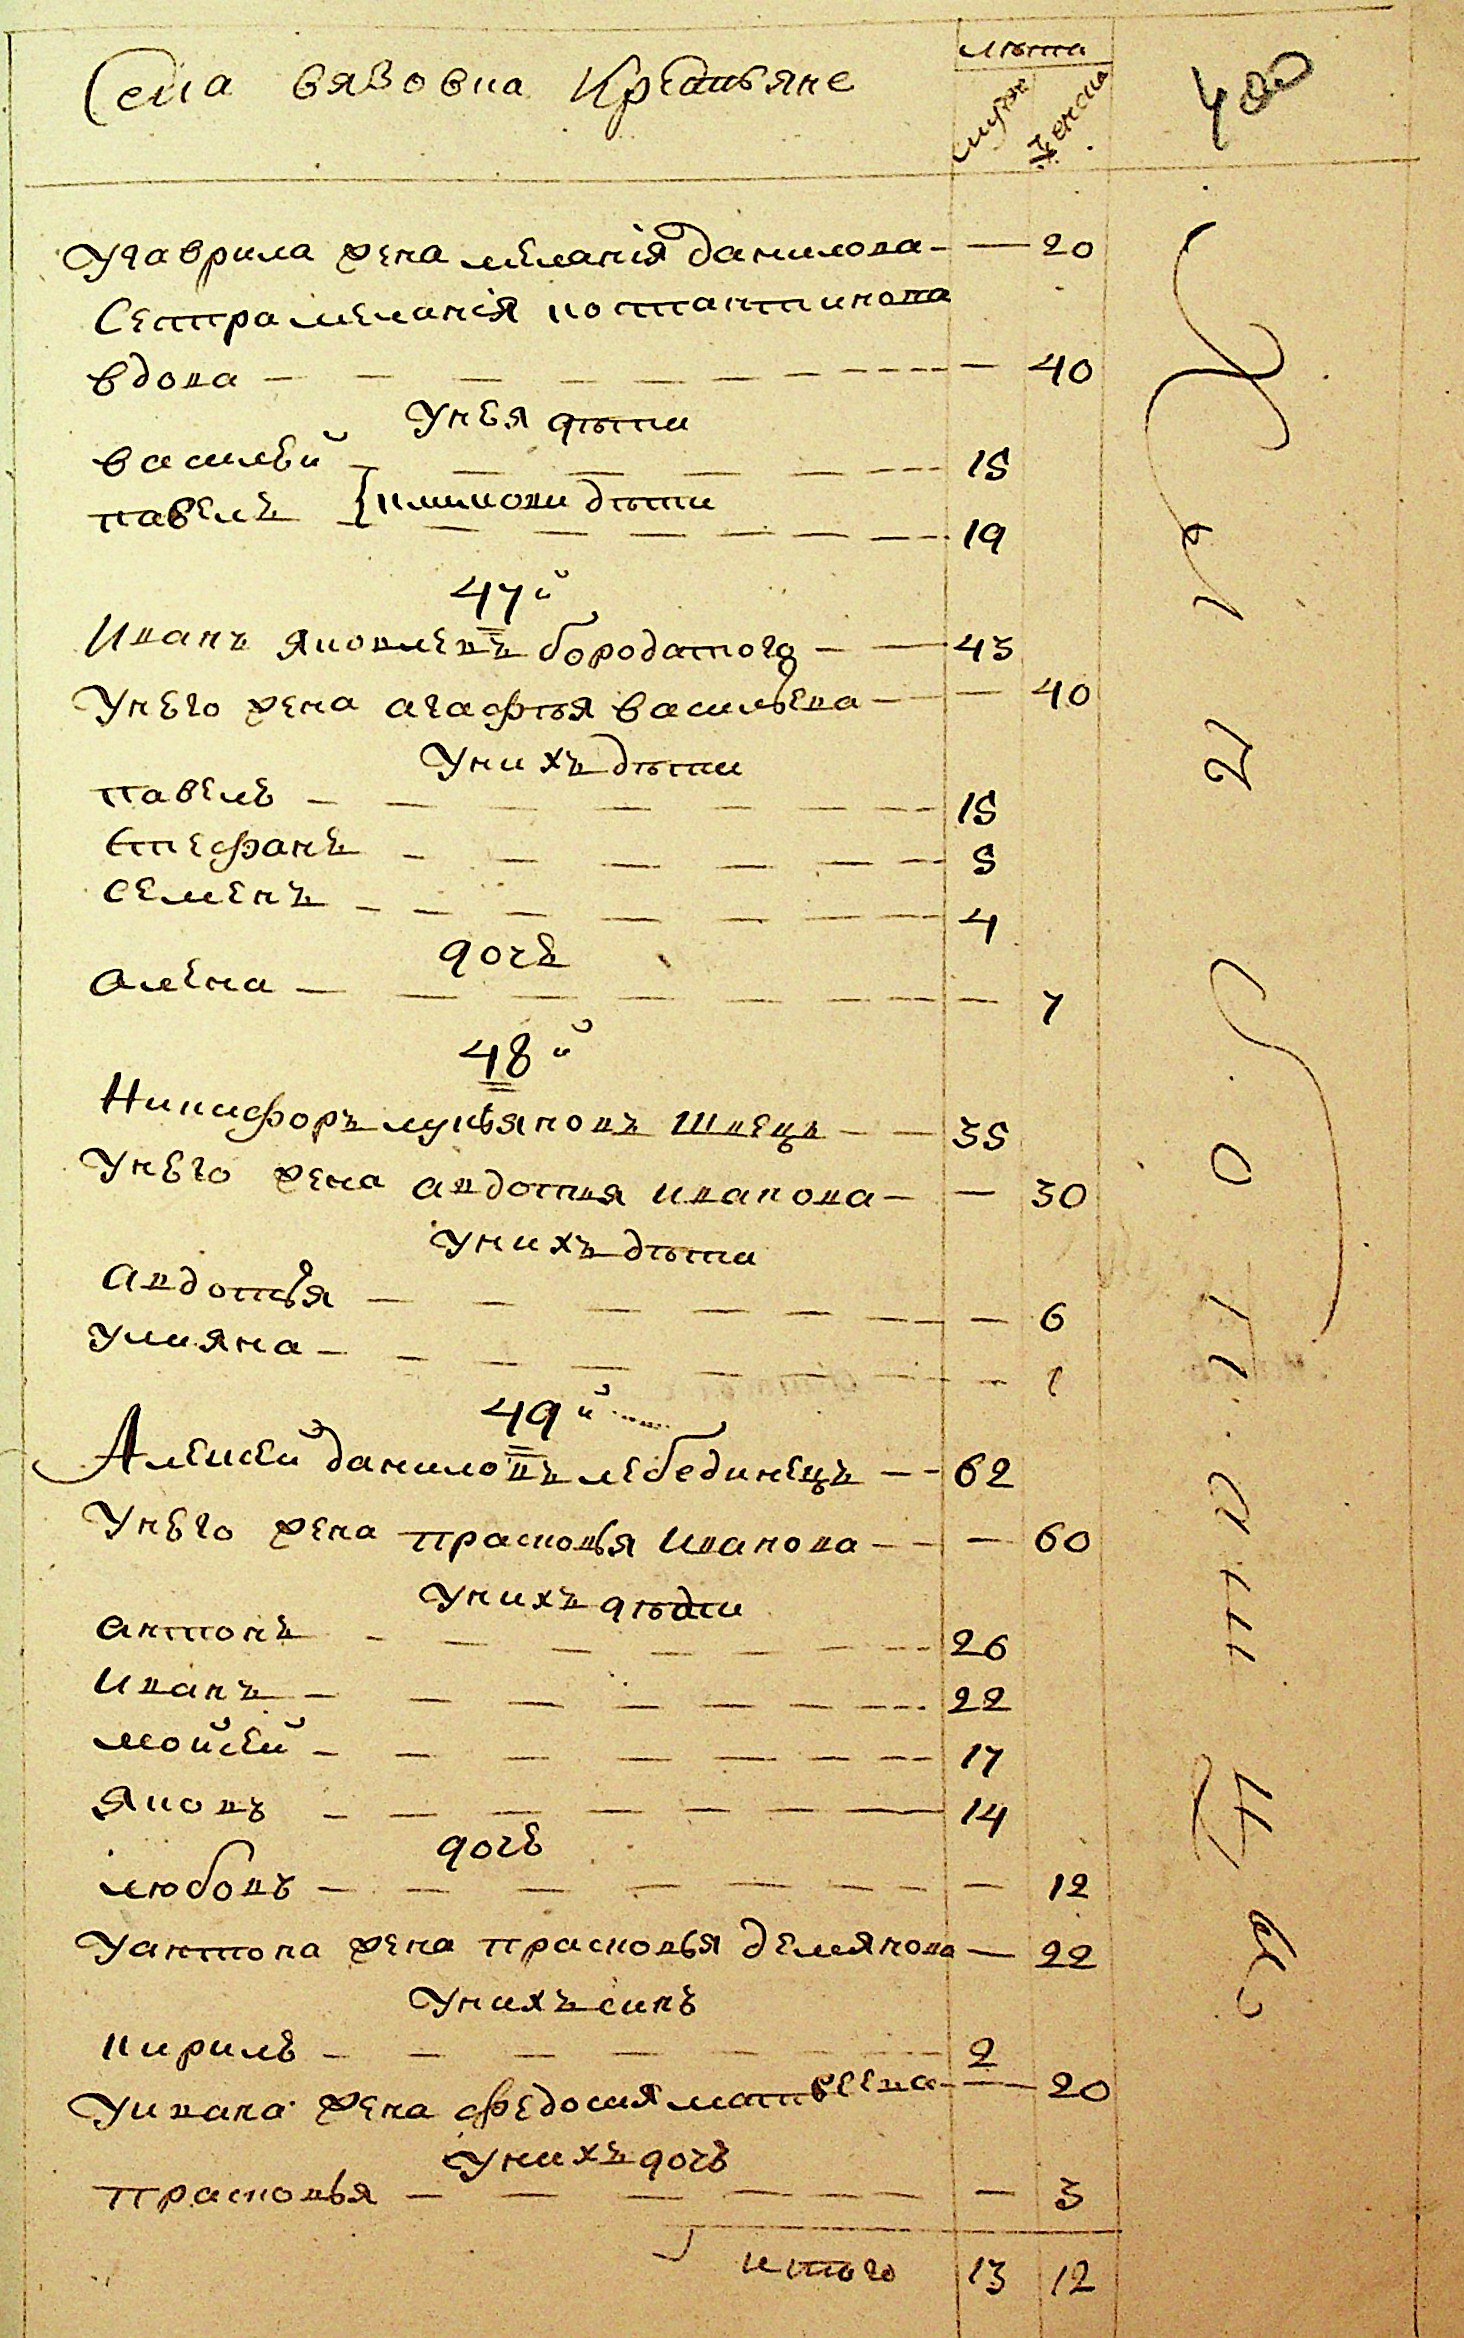 Села вязовка Крестьяне
лѣта
мужс
женска
400
Угаврила жена меланія данилова — 20
Сестра меланія костантинова
вдова — — 40
Унея дѣти
василей — 15
павелъ { климови дѣти — 19
47й
Иванъ яковлевъ бородатого — 43
Унего жена агафья васильева — 40
Унихъ дѣти
павелъ — 15
стефанъ — 5
семенъ — 4
дочь
алена — 7
48й
Никифоръ лукьяновъ швецъ — 35
Унего жена авдотья иванова — 30
Унихъ дѣти
авдотья — 6
улияна — 1
49й
Алексей даниловъ лебединецъ — 62
Унего жена прасковья иванова — 60
Унихъ дѣти
антонъ — 26
иванъ — 22
мойсей — 17
яковъ — 14
дочь
любовъ — 12
Уантона жена прасковья демянова — 22
Унихъ синъ
кирилъ — 2
Уивана жена федосия матвеева — 20
Унихъ дочь
прасковья — 3
итого 13 12